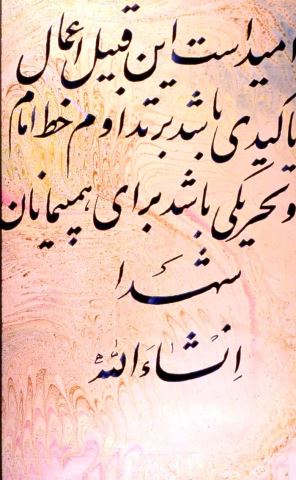 امید است این قبیل اعمال
تاکیدی باشد بر تداوم خط امام
و تحریکی باشد برای همپیمانان
شهدا
انشاءالله